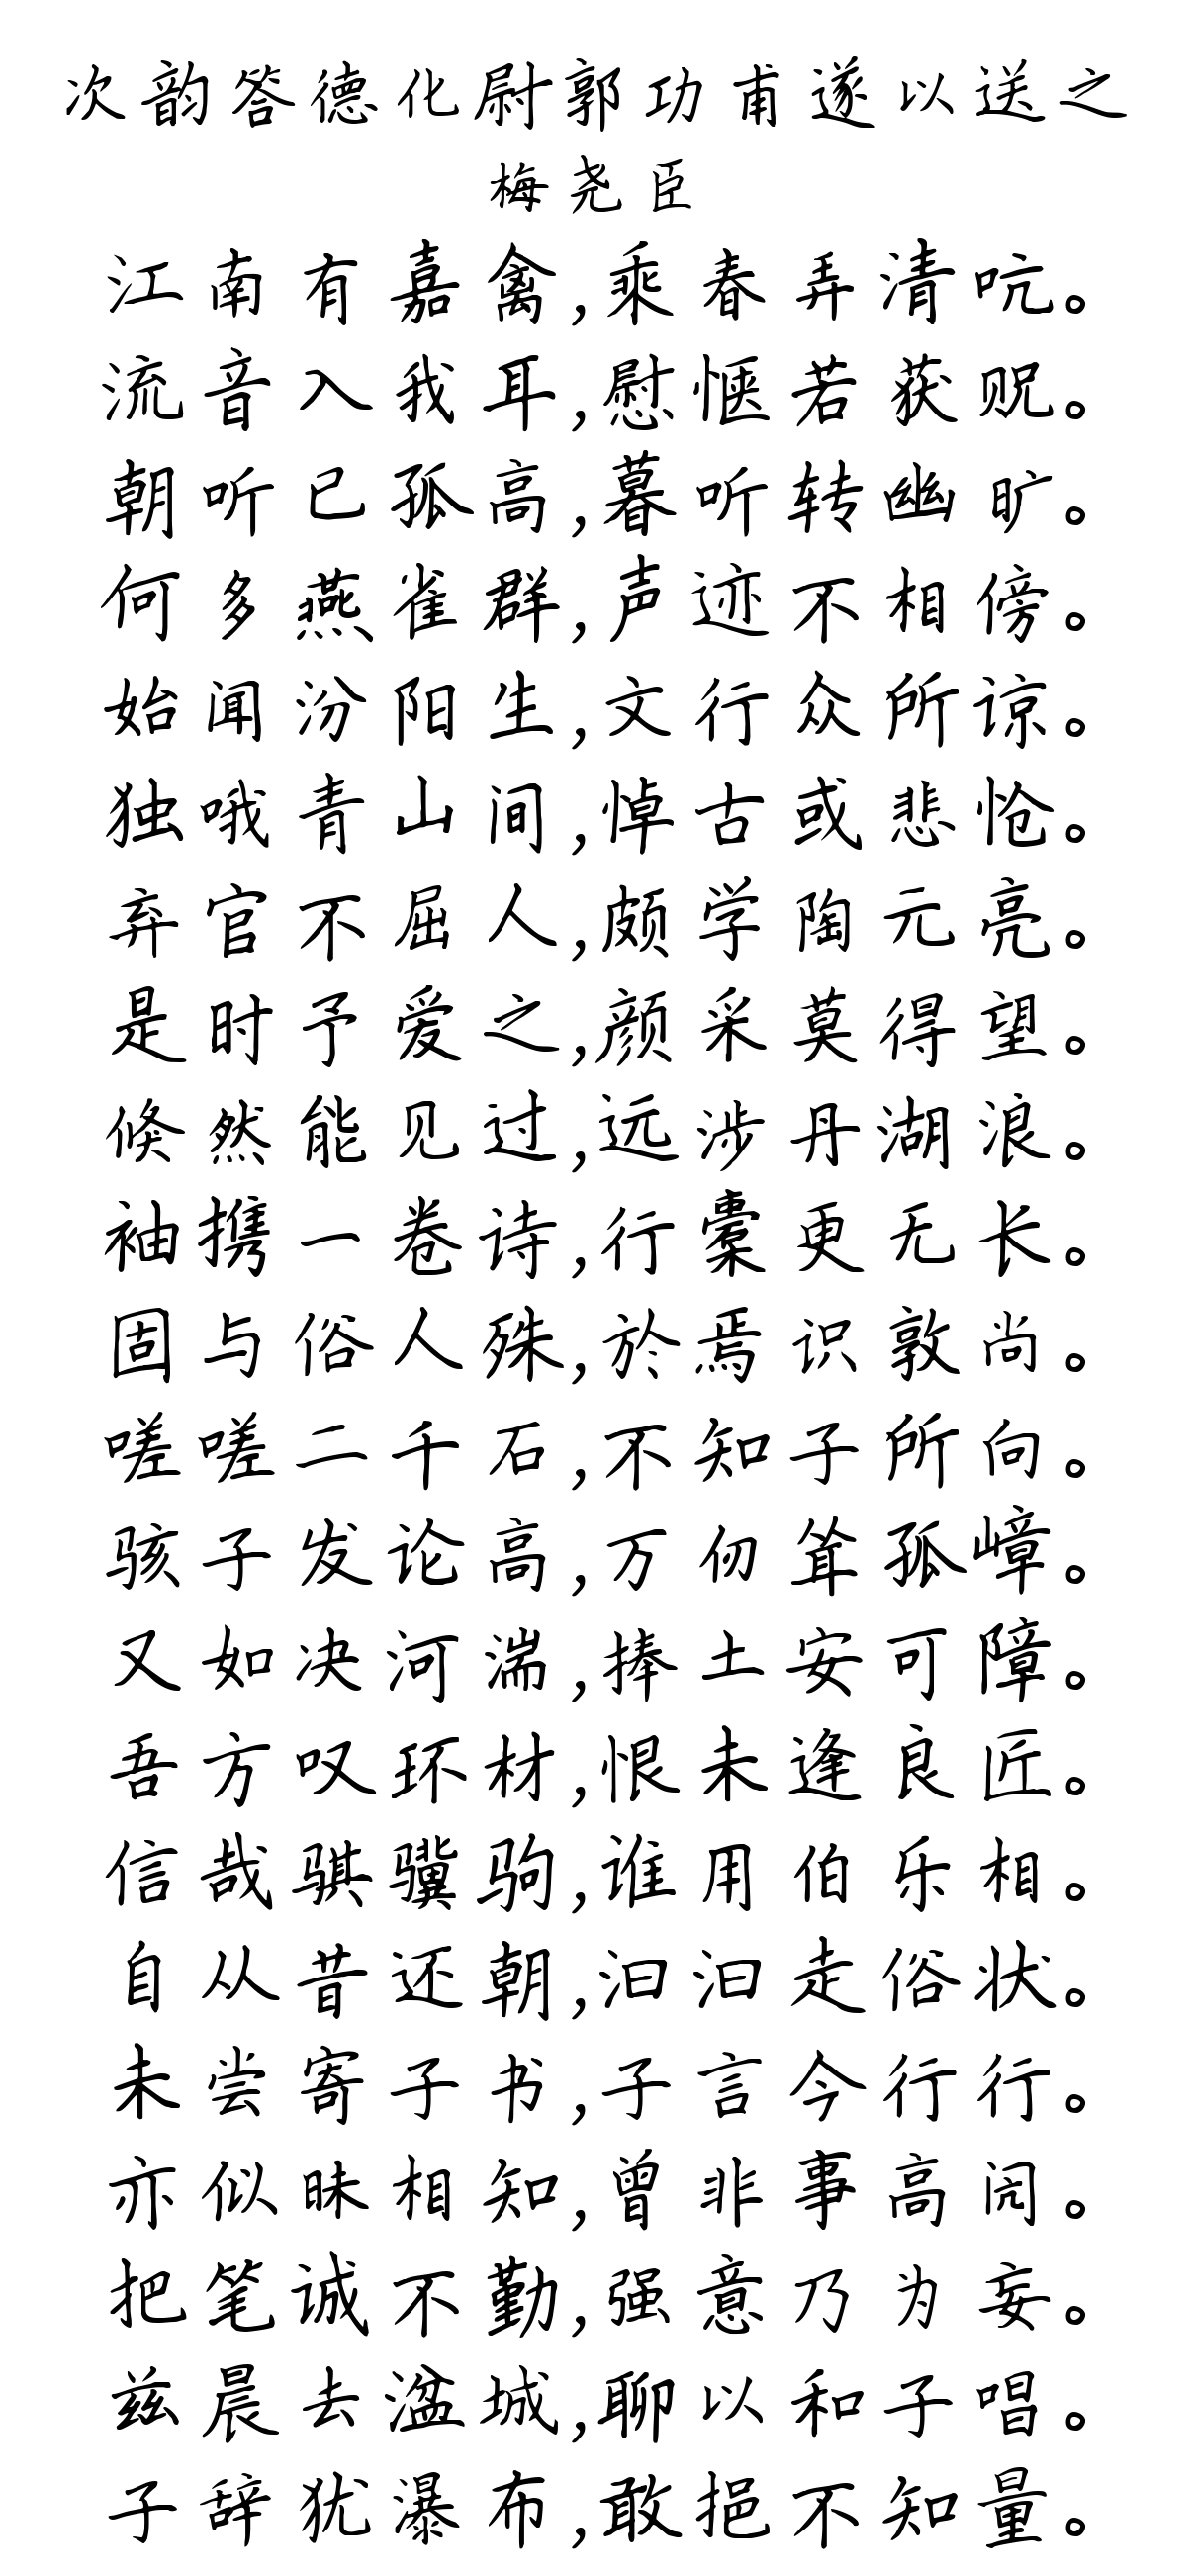 次韵答德化尉郭功甫遂以送之
梅尧臣
江南有嘉禽,乘春弄清吭。
流音入我耳,慰惬若获贶。
朝听已孤高,暮听转幽旷。
何多燕雀群,声迹不相傍。
始闻汾阳生,文行众所谅。
独哦青山间,悼古或悲怆。
弃官不屈人,颇学陶元亮。
是时予爱之,颜采莫得望。
倏然能见过,远涉丹湖浪。
袖携一卷诗,行橐更无长。
固与俗人殊,於焉识敦尚。
嗟嗟二千石,不知子所向。
骇子发论高,万仞耸孤嶂。
又如决河湍,捧土安可障。
吾方叹环材,恨未逢良匠。
信哉骐骥驹,谁用伯乐相。
自从昔还朝,汩汩走俗状。
未尝寄子书,子言今行行。
亦似昧相知,曾非事高闶。
把笔诚不勤,强意乃为妄。
兹晨去湓城,聊以和子唱。
子辞犹瀑布,敢挹不知量。